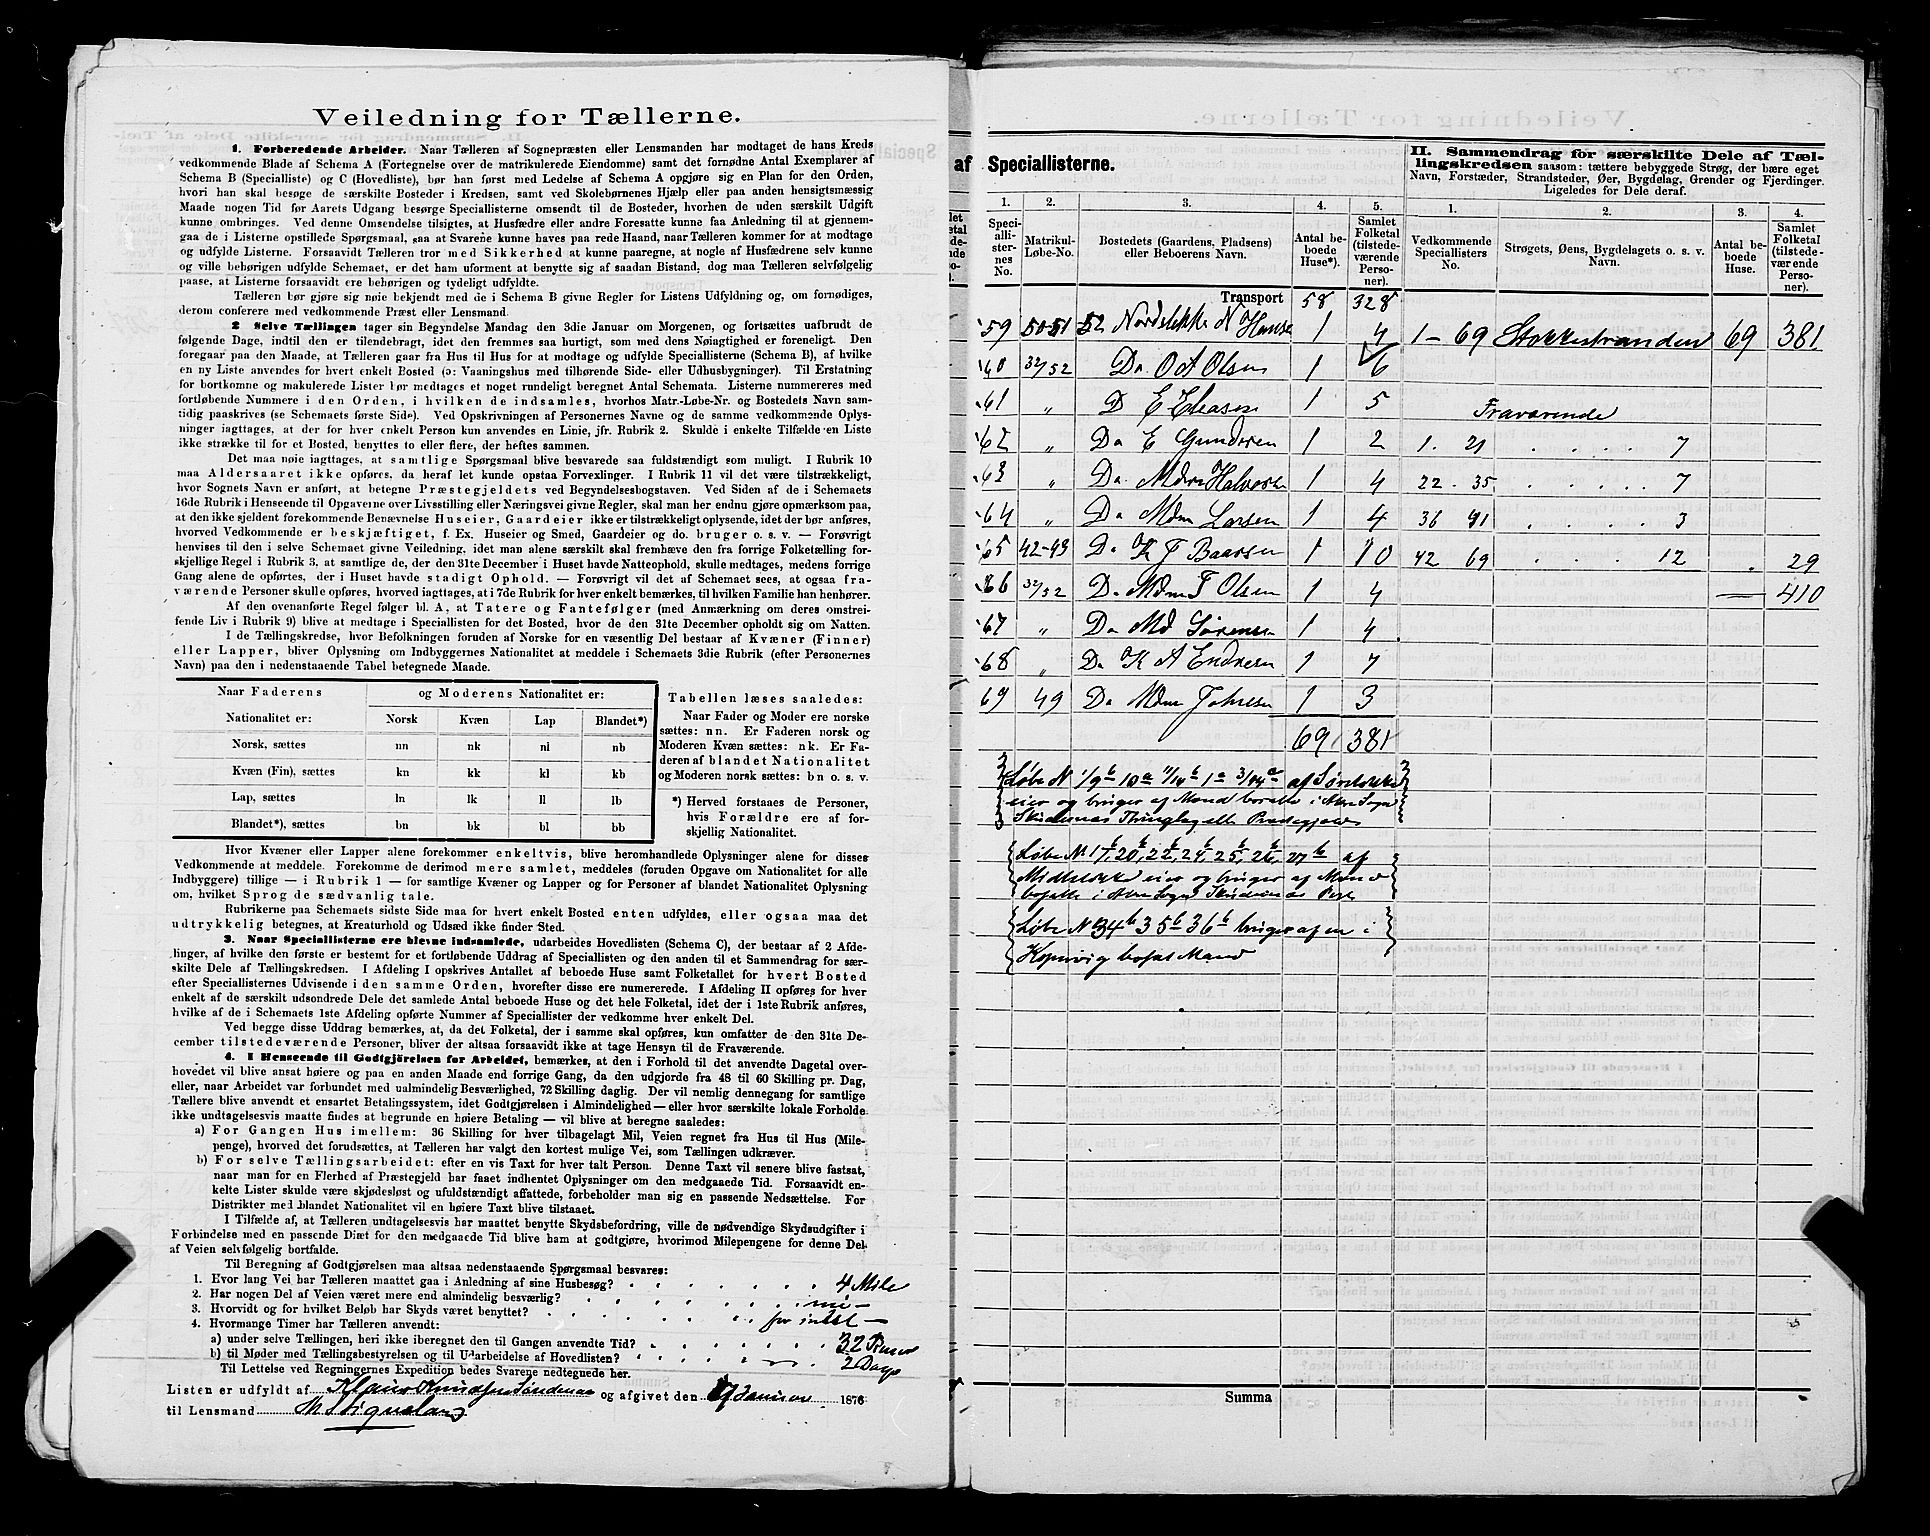 Veiledning for Tællerne.
1. Forberedende Arbeider. Naar Tælleren af Sognepræsten eller Lensmanden har modtaget de hans Kreds
vedkommende Blade af Schema A (Fortegnelse over de matrikulerede Eiendomme) samt det fornødne Antal Exemplarer af
Schema B (Specialliste) og C (Hovedliste), bør han først med Ledelse af Schema A opgjøre sig en Plan for den Orden,
hvori han skal besøge de særskilte Bosteder i Kredsen, samt ved Skolebørnenes Hjælp eller paa anden hensigtsmæssig
Maade nogen Tid før Aarets Udgang besørge Speciallisterne omsendt til de Bosteder, hvorhen de uden særskilt Udgift
kunne ombringes. Ved denne Omsendelse tilsigtes, at Husfædre eller andre Foresatte kunne faa Anledning til at gjennem-
gaa de i Listerne opstillede Spørgsmaal, saa at Svarene kunne haves paa rede Haand, naar Tælleren kommer for at modtage
og udfylde Listerne. Forsaavidt Tælleren tror med Sikkerhed at kunne paaregne, at nogle af Husfædrene selv kunne
og ville behørigen udfylde Schemaet, er det ham uforment at benytte sig af saadan Bistand, dog maa Tælleren selvfølgelig
paase, at Listerne forsaavidt ere behørigen og tydelig udfyldte.
Tælleren bør gjøre sig nøie bekjendt med de i Schema B givne Regler for Listens Udfyldning og, om fornødiges,
derom conferere med vedkommende Præst eller Lensmand.
2 Selve Tællingen tager sin Begyndelse Mandag den 3die Januar om Morgenen, og fortsættes uafbrudt de
følgende Dage, indtil den er tilendebragt, idet den fremmes saa hurtigt, som med dens Nøiagtighed er foreneligt. Den
foregaar paa den Maade, at Tælleren gaar fra Hus til Hus for at modtage og udfylde Speciallisterne (Schema B), af hvilke
en ny Liste anvendes for hvert enkelt Bosted (ɔ: Vaaningshus med tilhørende Side- eller Udhusbygninger). Til Erstatning
for bortkomne og makulerede Lister bør medtages et noget rundeligt beregnet Antal Schemata. Listerne nummereres med
fortløbende Nummere i den Orden, i hvilken de indsamles, hvorhos Matr.-Løbe-Nr. og Bostedets Navn sam-
tidig paaskrives (se Schemaets første Side). Ved Opskrivningen af Personernes Navne og de samme vedkommende Oplys-
ninger iagttages, at der for hver enkelt Person kun anvendes en Linie, jfr. Rubrik 2. Skulde i enkelte Tilfælde en Liste
ikke strække til for et Bosted, benyttes to eller flere, der heftes sammen.
Det maa nøie iagttages, at samtlige Spørgsmaal blive besvarede saa fuldstændigt som muligt. I Rubrik 10
maa Aldersaaret ikke opføres, da heraf let kunde opstaa Forvexlinger. I Rubrik 11 vil det være tilstrækkeligt,
hvor Sognets Navn er anført, at betegne Præstegjeldets ved Begyndelsesbogstaven. Ved Siden af de i Schemaets
16de Rubrik i Henseende til Opgaverne over Livsstilling eller Næringsvei givne Regler, skal man her endnu gjøre opmærksom paa,
at den ikke sjeldent forekommende Benævnelse Huseier, Gaardeier ikke er tilstrækkeligt oplysende, idet der bør anføres,
hvorved Vedkommende er beskjæftiget, f. Ex. Huseier og Smed, Gaardeier og do. bruger o. s. v. — Forøvrigt
henvises til den i selve Schemaet givne Veiledning, idet man alene særskilt skal fremhæve den fra forrige Folketælling for-
skjellige Regel i Rubrik 3, at samtlige de, der den 31te December i Huset havde Natteophold, skulle medtages, medens forrige
Gang alene de opførtes, der i Huset havde stadigt Ophold. — Forøvrigt vil det af Schemaet sees, at ogsaa fra-
værende Personer skulle opføres, hvorved iagttages, at i 7de Rubrik for hver enkelt bemærkes, til hvilken Familie han henhører.
Af den ovenanførte Regel følger bl. A., at Tatere og Fantefølger (med Anmærkning om deres omstrei-
fende Liv i Rubrik 9) blive at medtage i Speciallisten for det Bosted, hvor de den 31te December opholdt sig om Natten.
I de Tællingskredse, hvor Befolkningen foruden af Norske for en væsentlig Del bestaar af Kvæner (Finner)
eller Lapper, bliver Oplysning om Indbyggernes Nationalitet at meddele i Schemaets 3die Rubrik (efter Personernes
Navn) paa den i nedenstaaende Tabel betegnede Maade.
Naar Faderens
Nationalitet er:
og Moderens Nationalitet er:
Norsk Kvæn Lap Blandet*)
Norsk, sættes nn nk nl nb
Kvæn (Fin), sættes kn kk kl kb
Lap, sættes ln lk ll lb
Blandet*), sættes bn bk bl bb
Tabellen læses saaledes:
Naar Fader og Moder ere norske
sættes: nn. Er Faderen norsk og
Moderen Kvæn sættes: nk. Er Fa-
deren af blandet Nationalitet
og Moderen norsk sættes: bn o. s. v.
*) Herved forstaaes de Personer,
hvis Forældre ere af for-
skjellig Nationalitet.
Hvor Kvæner eller Lapper alene forekommer enkeltvis, blive heromhandlede Oplysninger alene for disses
Vedkommende at meddele. Forekomme de derimod mere samlet, meddeles (foruden Opgave om Nationalitet for alle
Indbyggere) tillige — i Rubrik 1 — for samtlige Kvæner og Lapper og for Personer af blandet Nationalitet Oplysning
om, hvilket Sprog de sædvanlig tale.
Rubrikerne paa Schemaets sidste Side maa for hvert enkelt Bosted enten udfyldes, eller ogsaa maa det
udtrykkelig betegnes, at Kreaturhold og Udsæd ikke finder Sted.
3. Naar Speciallisterne ere blevne indsamlede, udarbeides Hovedlisten (Schema C), der bestaar af 2 Afde-
linger, af hvilke den første er bestemt for et fortløbende Uddrag af Speciallisten og den anden til et Sammendrag for sær-
skilte Dele af Tællingskredsen. I Afdeling I opskrives Antallet af beboede Huse samt Folketallet for hvert Bosted
efter Speciallisternes Udvisende i den samme Orden, hvorefter disse ere numererede. I Afdeling II opføres for hver
enkelt af de særskilt udsondrede Dele det samlede Antal beboede Huse og det hele Folketal, idet der i 1ste Rubrik anføres,
hvilke af de i Schemaets 1ste Afdeling opførte Nummer af Speciallister der vedkomme hver enkelt Del.
Ved begge disse Uddrag bemærkes, at, da det Folketal, der i samme skal opføres, kun omfatter de den 31te De-
cember tilstedeværende Personer, bliver der altsaa forsaavidt ikke at tage Hensyn til de Fraværende.
4. I Henseende til Godtgjörelsen for Arbeidet, bemærkes, at den i Forhold til det anvendte Dagetal over-
hovedet vil blive ansat høiere og paa en anden Maade end forrige Gang, da den udgjorde fra 48 til 60 Skilling pr. Dag,
eller, naar Arbeidet var forbundet med ualmindelig Besværlighed, 72 Skilling daglig. Der vil nemlig dennegang for samtlige
Tællere blive anvendt et ensartet Betalingssystem, idet Godtgjørelsen i Almindelighed — eller hvor særskilte lokale Forholde
ikke undtagelsesvis maatte findes at begrunde en høiere Betaling — vil blive at beregne saaledes:
a) For Gangen Hus imellem: 36 Skilling for hver tilbagelagt Mil, Veien regnet fra Hus til Hus (Mile-
penge), hvorved det forudsættes, at Tælleren har valgt den kortest mulige Vei, som Tællingen udkræver.
b) For selve Tællingsarbeidet: efter en vis Taxt for hver talt Person. Denne Taxt vil senere blive fastsat,
naar man for en Flerhed af Præstegjeld har faaet indhentet Oplysninger om den medgaaede Tid. Forsaavidt en-
kelte Lister skulde være skjødesløst og ufuldstændigt affattede, forbeholder man sig en passende Nedsættelse. For
Distrikter med blandet Nationalitet vil en høiere Taxt blive tilstaaet.
I Tilfælde af, at Tælleren undtagelsesvis har maattet benytte Skydsbefordring, ville de nødvendige Skydsudgifter i
Forbindelse med en passende Diæt for den medgaaede Tid blive ham at godtgjøre, hvorimod Milepengene for denne Del
af Veien selvfølgelig bortfalde.
Til Beregning af Godtgjørelsen maa altsaa nedenstaaende Spørgsmaal besvares:
1. Hvor lang Vei har Tælleren maattet gaa i Anledning af sine Husbesøg? 4 Mile
2. Har nogen Del af Veien været mere end almindelig besværlig? nei —
3. Hvorvidt og for hvilket Beløb har Skyds været benyttet? for intet —
4. Hvormange Timer har Tælleren anvendt:
a) under selve Tællingen, heri ikke iberegnet den til Gangen anvendte Tid? 32 Timer
b) til Møder med Tællingsbestyrelsen og til Udarbeidelse af Hovedlisten? 2 Dage
Til Lettelse ved Regningernes Expedition bedes Svarene nedtegnede her.
Listen er udfyldt af Knudsen og afgivet den Januar 1876
til Lensmand
af Speciallisterne.
1. 2. 3. 4. 5.
Speci-
allister-
nes
No.
Matrikul-
Løbe-No.
Bostedets (Gaardens, Pladsens)
eller Beboerens Navn.
Antal be-
boede
Huse*).
Samlet
Folketal
(tilstede-
værende
Perso-
ner).
II. Sammendrag for særskilte Dele af Tæl-
lingskredsen saasom: tættere bebyggede Strøg, der bære eget
Navn, Forstæder, Strandsteder, Øer, Bygdelag, Grender og Fjerdinger.
Ligeledes for Dele deraf.
1. 2. 3. 4.
Vedkommende
Speciallisters
No.
Strøgets, Øens, Bygdelagets o. s. v.
Navn.
Antal be-
boede
Huse.
Samlet
Folketal
(tilstede-
værende
Perso-
ner).
Transport 58 328
59 50-51 52 N Hansen 1 4 1 — 69 Stokkestranden 69 381
60 32/52 Do O A Olsen 1 6
61 „ D E Eliasen 1 5 Fraværende
62 „ Do E Gundersen 1 2 1. 21 7
63 „ Do Mdm Halvorsen 1 4 22 - 35 7
64 „ Do Mdm Larsen 1 4 36 41 3
65 42-43 Do K J Baarsen 1 10 42 69 12 29
66 32/52 Do Mdm T Olsen 1 4 — 410
67 „ Do Md Sørensen 1 4
68 „ Do K A Endresen 1 7
69 49 Do Mdm Johnsen 1 3
69 381
Løbe N 1/9 b 10 a 11/14 b 1 a 3/44 a af
eier og bruger af Mand bosatte i Sogn
Skudenæs Thinglag
Løbe N 17, 20 b, 22 b, 24 b, 25 b, 26 b, 27 b af
eier og bruger af Mand
bosatte i Sogn Skudenæs
Løbe N 34 b 35 b 36 b bruges af en i
Kopervig bosat Mand
Summa